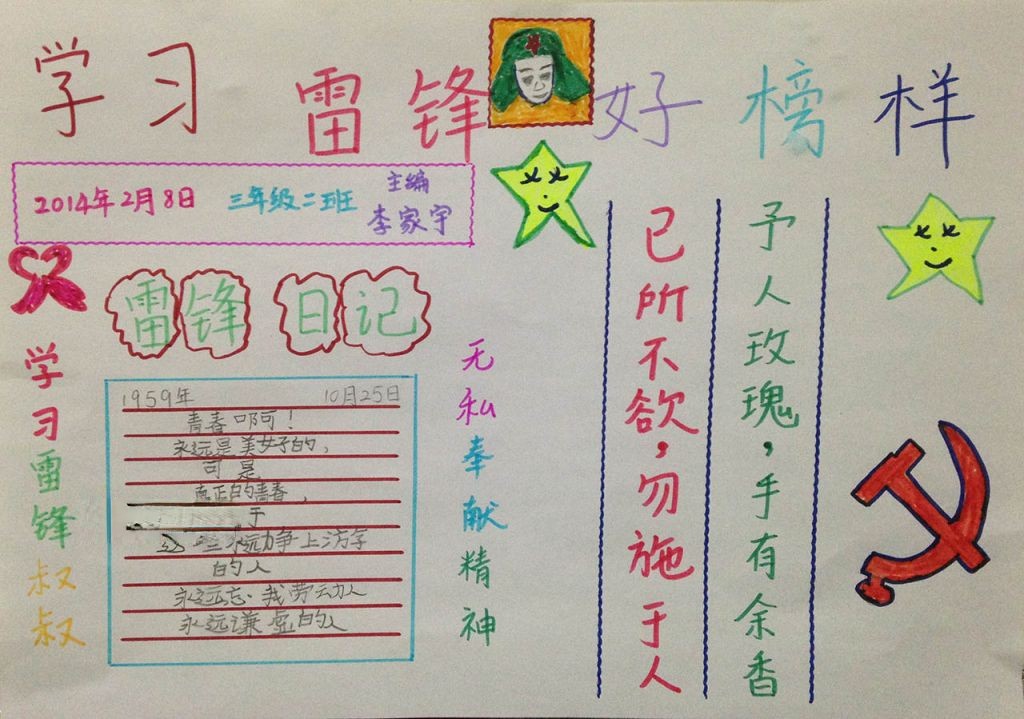 学习雷锋好榜样
2014年2月8日 三年级二班 主编 李家宇
雷锋日记
1959年 10月25日
青春啊!
永远是美好的,
可是
真正的青春,
于
永远力争上游
的人
永远忘我劳动
永远谦虚的人
学习雷锋叔叔
无私奉献精神
己所不欲,勿施于人
予人玫瑰,手有余香